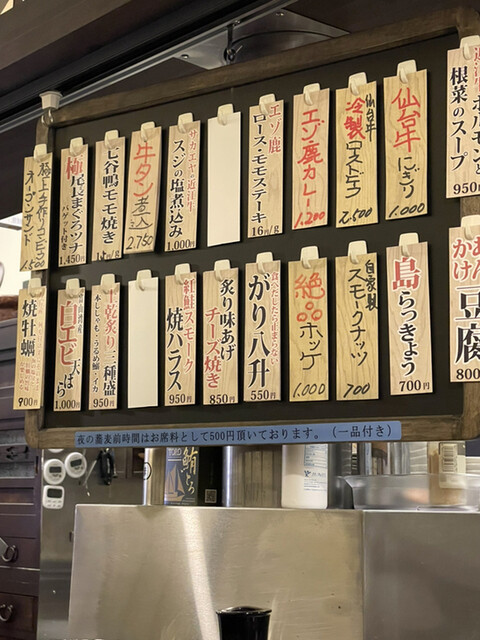 近江牛
ホルモンと
根菜のスープ
950円
仙台牛
にぎり
1.000
仙台牛
冷製
ローストビーフ
2.500
エゾ鹿カレー
1.200
エゾ鹿
ロース・モモステーキ
16円/g
サカエヤの近江牛
スジの塩煮込み
1,000円
牛タン煮込
2.750
七谷鴨モモ焼き
極 尾長まぐろツナ
バゲット付き
1,450円
極上手作りコンビーフ
オープンサンド
1.500
あんかけ
豆腐
800
島らっきょう
700円
自家製
スモークナッツ
700
絶品ホッケ
1.000
食べだしたら止まらない
がり八升
550円
炙り味あげ
チーズ焼き
850円
紅鮭スモーク
焼ハラス
950円
上乾炙り三種盛
本ししゃも・うるめ鰯・イカ
950円
白エビ天ぷら
1,000円
焼牡蠣
900円
夜の蕎麦前時間はお席料として500円頂いております。（一品付き）
TORO
鮪とろ